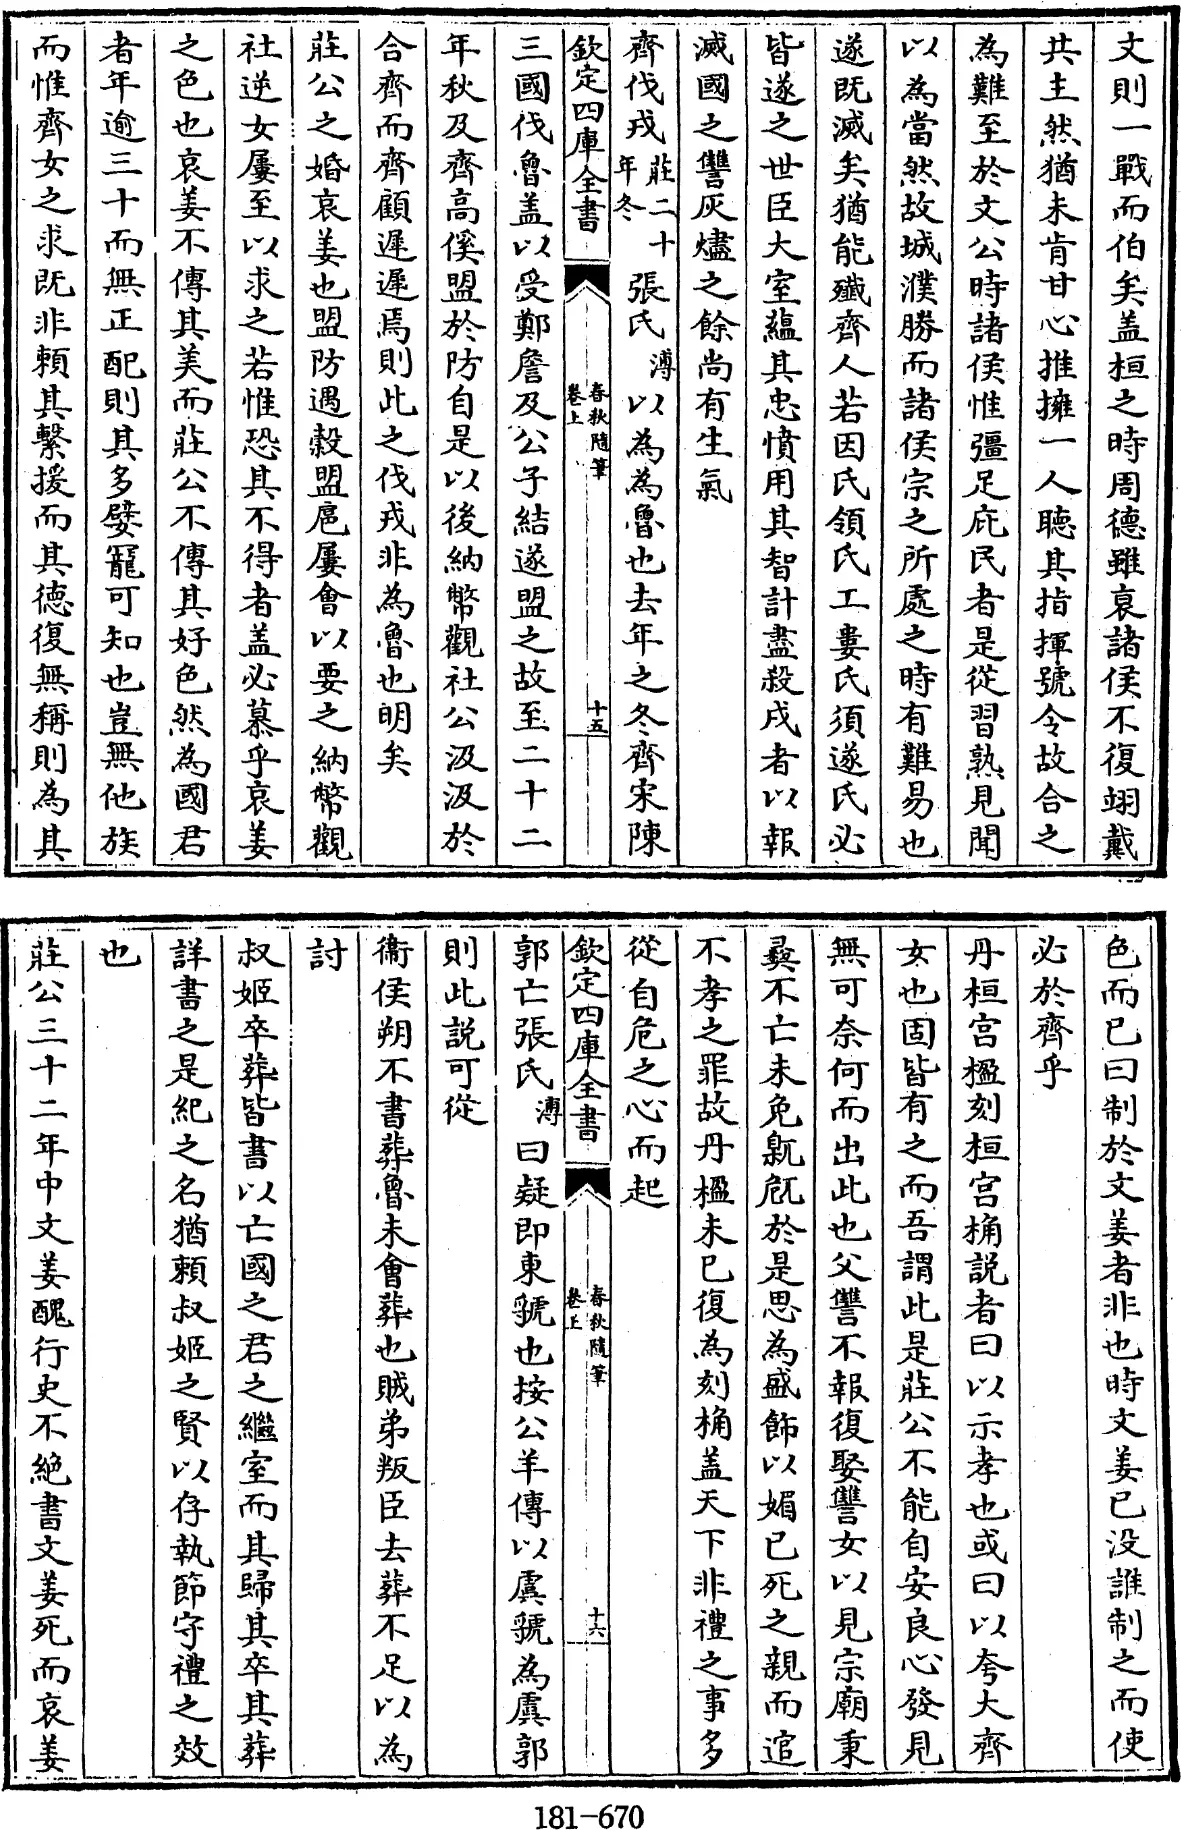 文則一戰而伯矣盖桓之時周徳雖衰諸侯不復翊戴
共主然猶未肯甘心推擁一人聽其指揮號令故合之
為難至於文公時諸侯惟彊足庇民者是從習熟見聞
以為當然故城濮勝而諸侯宗之所處之時有難易也
遂既滅矣猶能殲齊人若因氏領氏工婁氏須遂氏必
皆遂之世臣大室藴其忠憤用其智計盡殺戍者以報
滅國之讐灰燼之餘尚有生氣
齊伐戎莊二十年冬張氏溥以為為魯也去年之冬齊宋陳
欽定四庫全書
春秋隨筆
卷上
十五
三國伐魯盖以受鄭詹及公子結遂盟之故至二十二
年秋及齊高傒盟於防自是以後納幣觀社公汲汲於
合齊而齊顧遲遲焉則此之伐戎非為魯也明矣
莊公之婚哀姜也盟防遇穀盟扈屢會以要之納幣觀
社逆女屢至以求之若惟恐其不得者盖必慕乎哀姜
之色也哀姜不傳其美而莊公不傳其好色然為國君
者年逾三十而無正配則其多嬖寵可知也豈無他族
而惟齊女之求既非頼其繫援而其徳復無稱則為其
色而已曰制於文姜者非也時文姜已没誰制之而使
必於齊乎
丹桓宫楹刻桓宫桷説者曰以示孝也或曰以夸大齊
女也固皆有之而吾謂此是莊公不能自安良心發見
無可奈何而出此也父讐不報復娶讐女以見宗廟秉
彝不亡未免臲卼於是思為盛飾以媚已死之親而逭
不孝之罪故丹楹未已復為刻桷盖天下非禮之事多
從自危之心而起
欽定四庫全書
春秋隨筆
卷上
十六
郭亡張氏溥曰疑即東虢也按公羊傳以虞虢為虞郭
則此説可從
衞侯朔不書葬魯未會葬也賊弟叛臣去葬不足以為
討
叔姬卒葬皆書以亡國之君之繼室而其歸其卒其葬
詳書之是紀之名猶頼叔姬之賢以存執節守禮之效
也
莊公三十二年中文姜醜行史不絶書文姜死而哀姜
181-670